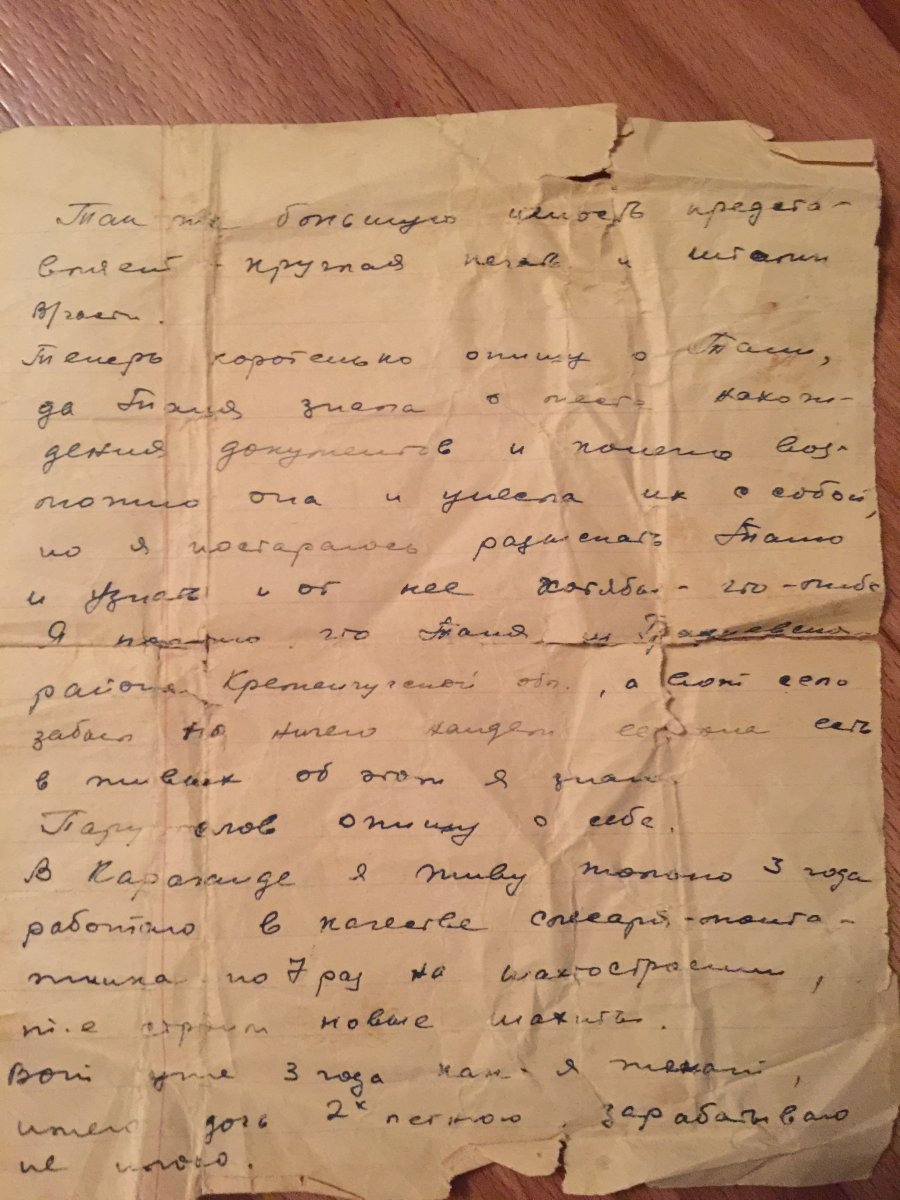 Так же большую ценость предста-
вляет - круглая печать и штамп
в/части.
Теперь коротенько опишу о Тани,
да Таня знала о месте нахож-
дения документов и помемо воз-
можно она и унесла их с собой,
но я постараюсь разыскать Таню
и узнать и от нее хотябы - что-либо
Я помню что Таня из
района Кременчугской обл., а вот село
забыл но ничего найдем если она есть
в живых об этом я знаю.
Пару слов опишу о себе.
В Караганде я живу только 3 года
работаю в качестве слесаря-монта-
жника по 7 раз на шахтостроении,
т.е строим новые шахты.
Вот уже 3 года как - я женат,
имею дочь 2х летнюю. зарабатываю
не плохо.